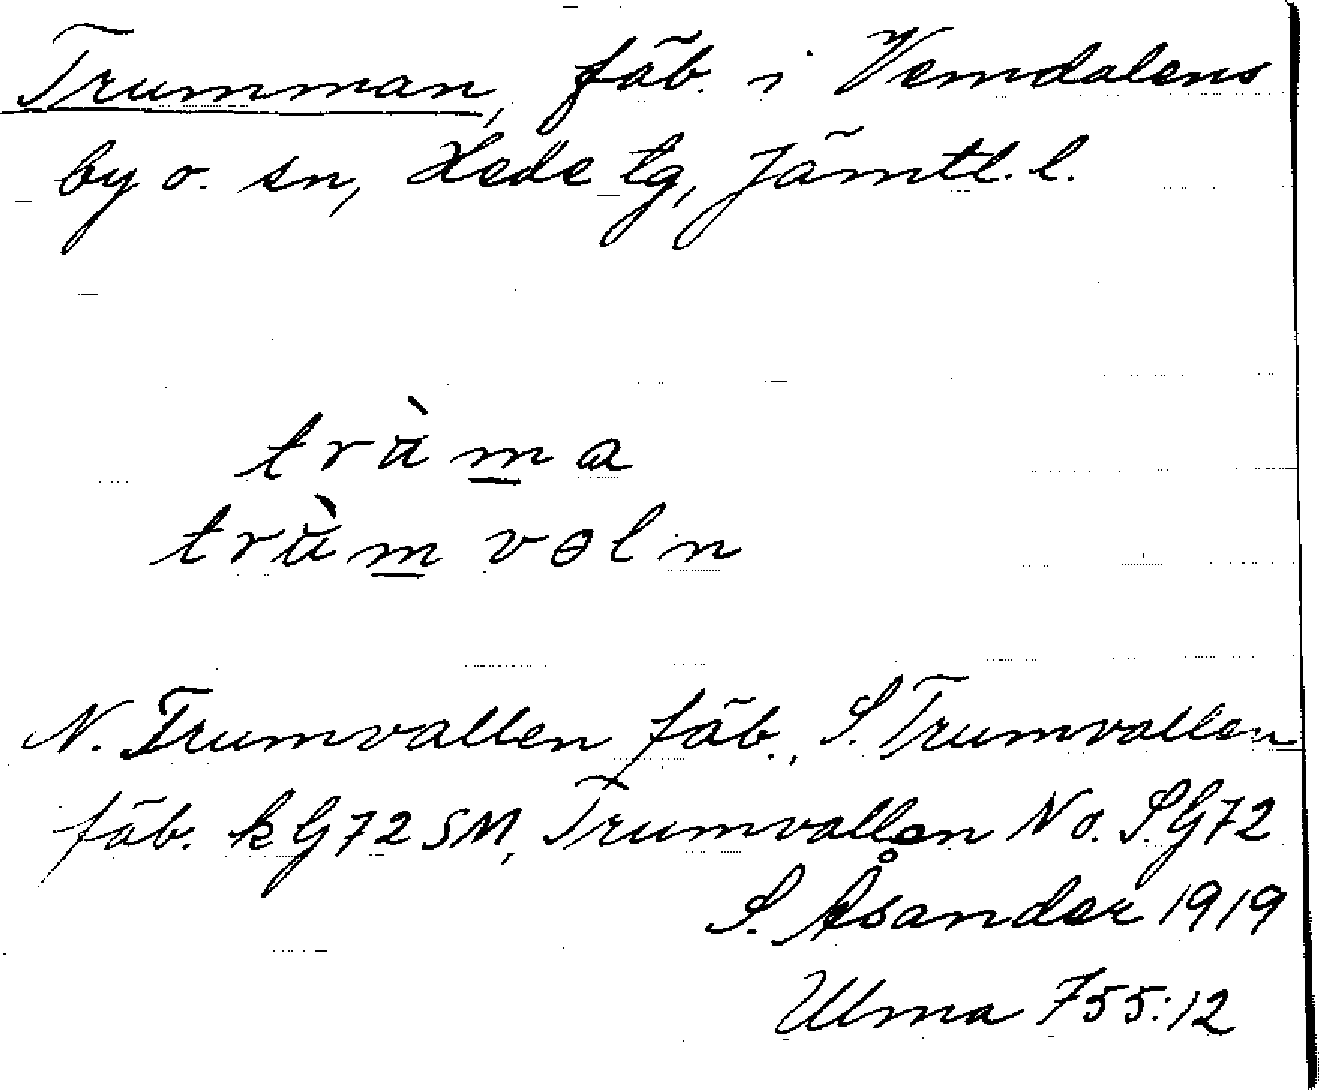 Trumman, fäb. i Vemdalens
by o. sn, Hede tg, Jämtl. l.
tràma
tràm voln
N. Trumvallen fäb., S. Trumvallen
fäb. k G72 SM, Trumvallen N o. S. G72
S. Åsander 1919
Ulma 755:12